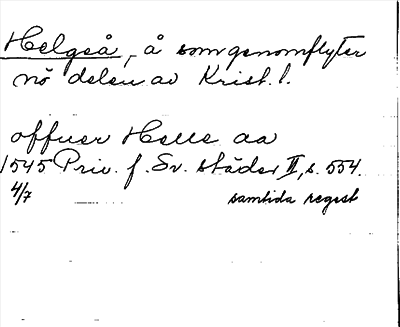 Helgeå, å som genomflyter
nö delen av Krist. l.
offuer Helle aa
1545 Priv. f. Sv. städer II, s. 554.
4/7 samtida regist